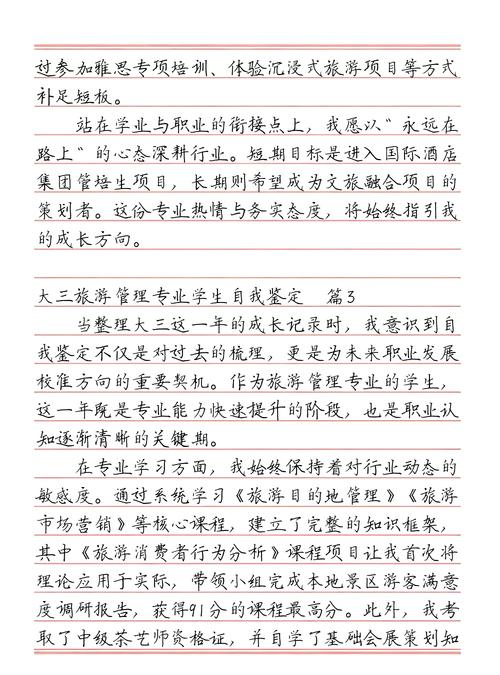 过参加雅思专项培训、体验沉浸式旅游项目等方式
补足短板。
站在学业与职业的衔接点上，我愿以“永远在
路上”的心态深耕行业。短期目标是进入国际酒店
集团管培生项目，长期则希望成为文旅融合项目的
策划者。这份专业热情与务实态度，将始终指引我
的成长方向。
大三旅游管理专业学生自我鉴定 篇3
当整理大三这一年的成长记录时，我意识到自
我鉴定不仅是对过去的梳理，更是为未来职业发展
校准方向的重要契机。作为旅游管理专业的学生，
这一年既是专业能力快速提升的阶段，也是职业认
知逐渐清晰的关键期。
在专业学习方面，我始终保持着对行业动态的
敏感度。通过系统学习《旅游目的地管理》《旅游
市场营销》等核心课程，建立了完整的知识框架，
其中《旅游消费者行为分析》课程项目让我首次将
理论应用于实际，带领小组完成本地景区游客满意
度调研报告，获得91分的课程最高分。此外，我考
取了中级茶艺师资格证，并自学了基础会展策划知